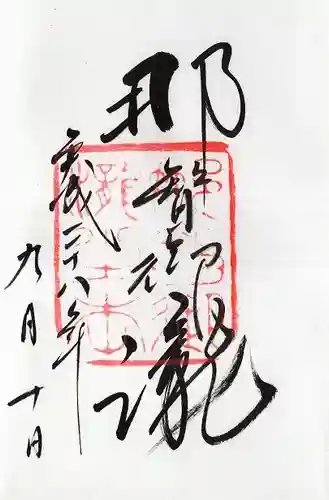 那智御瀧
平成二十八年
九月十日